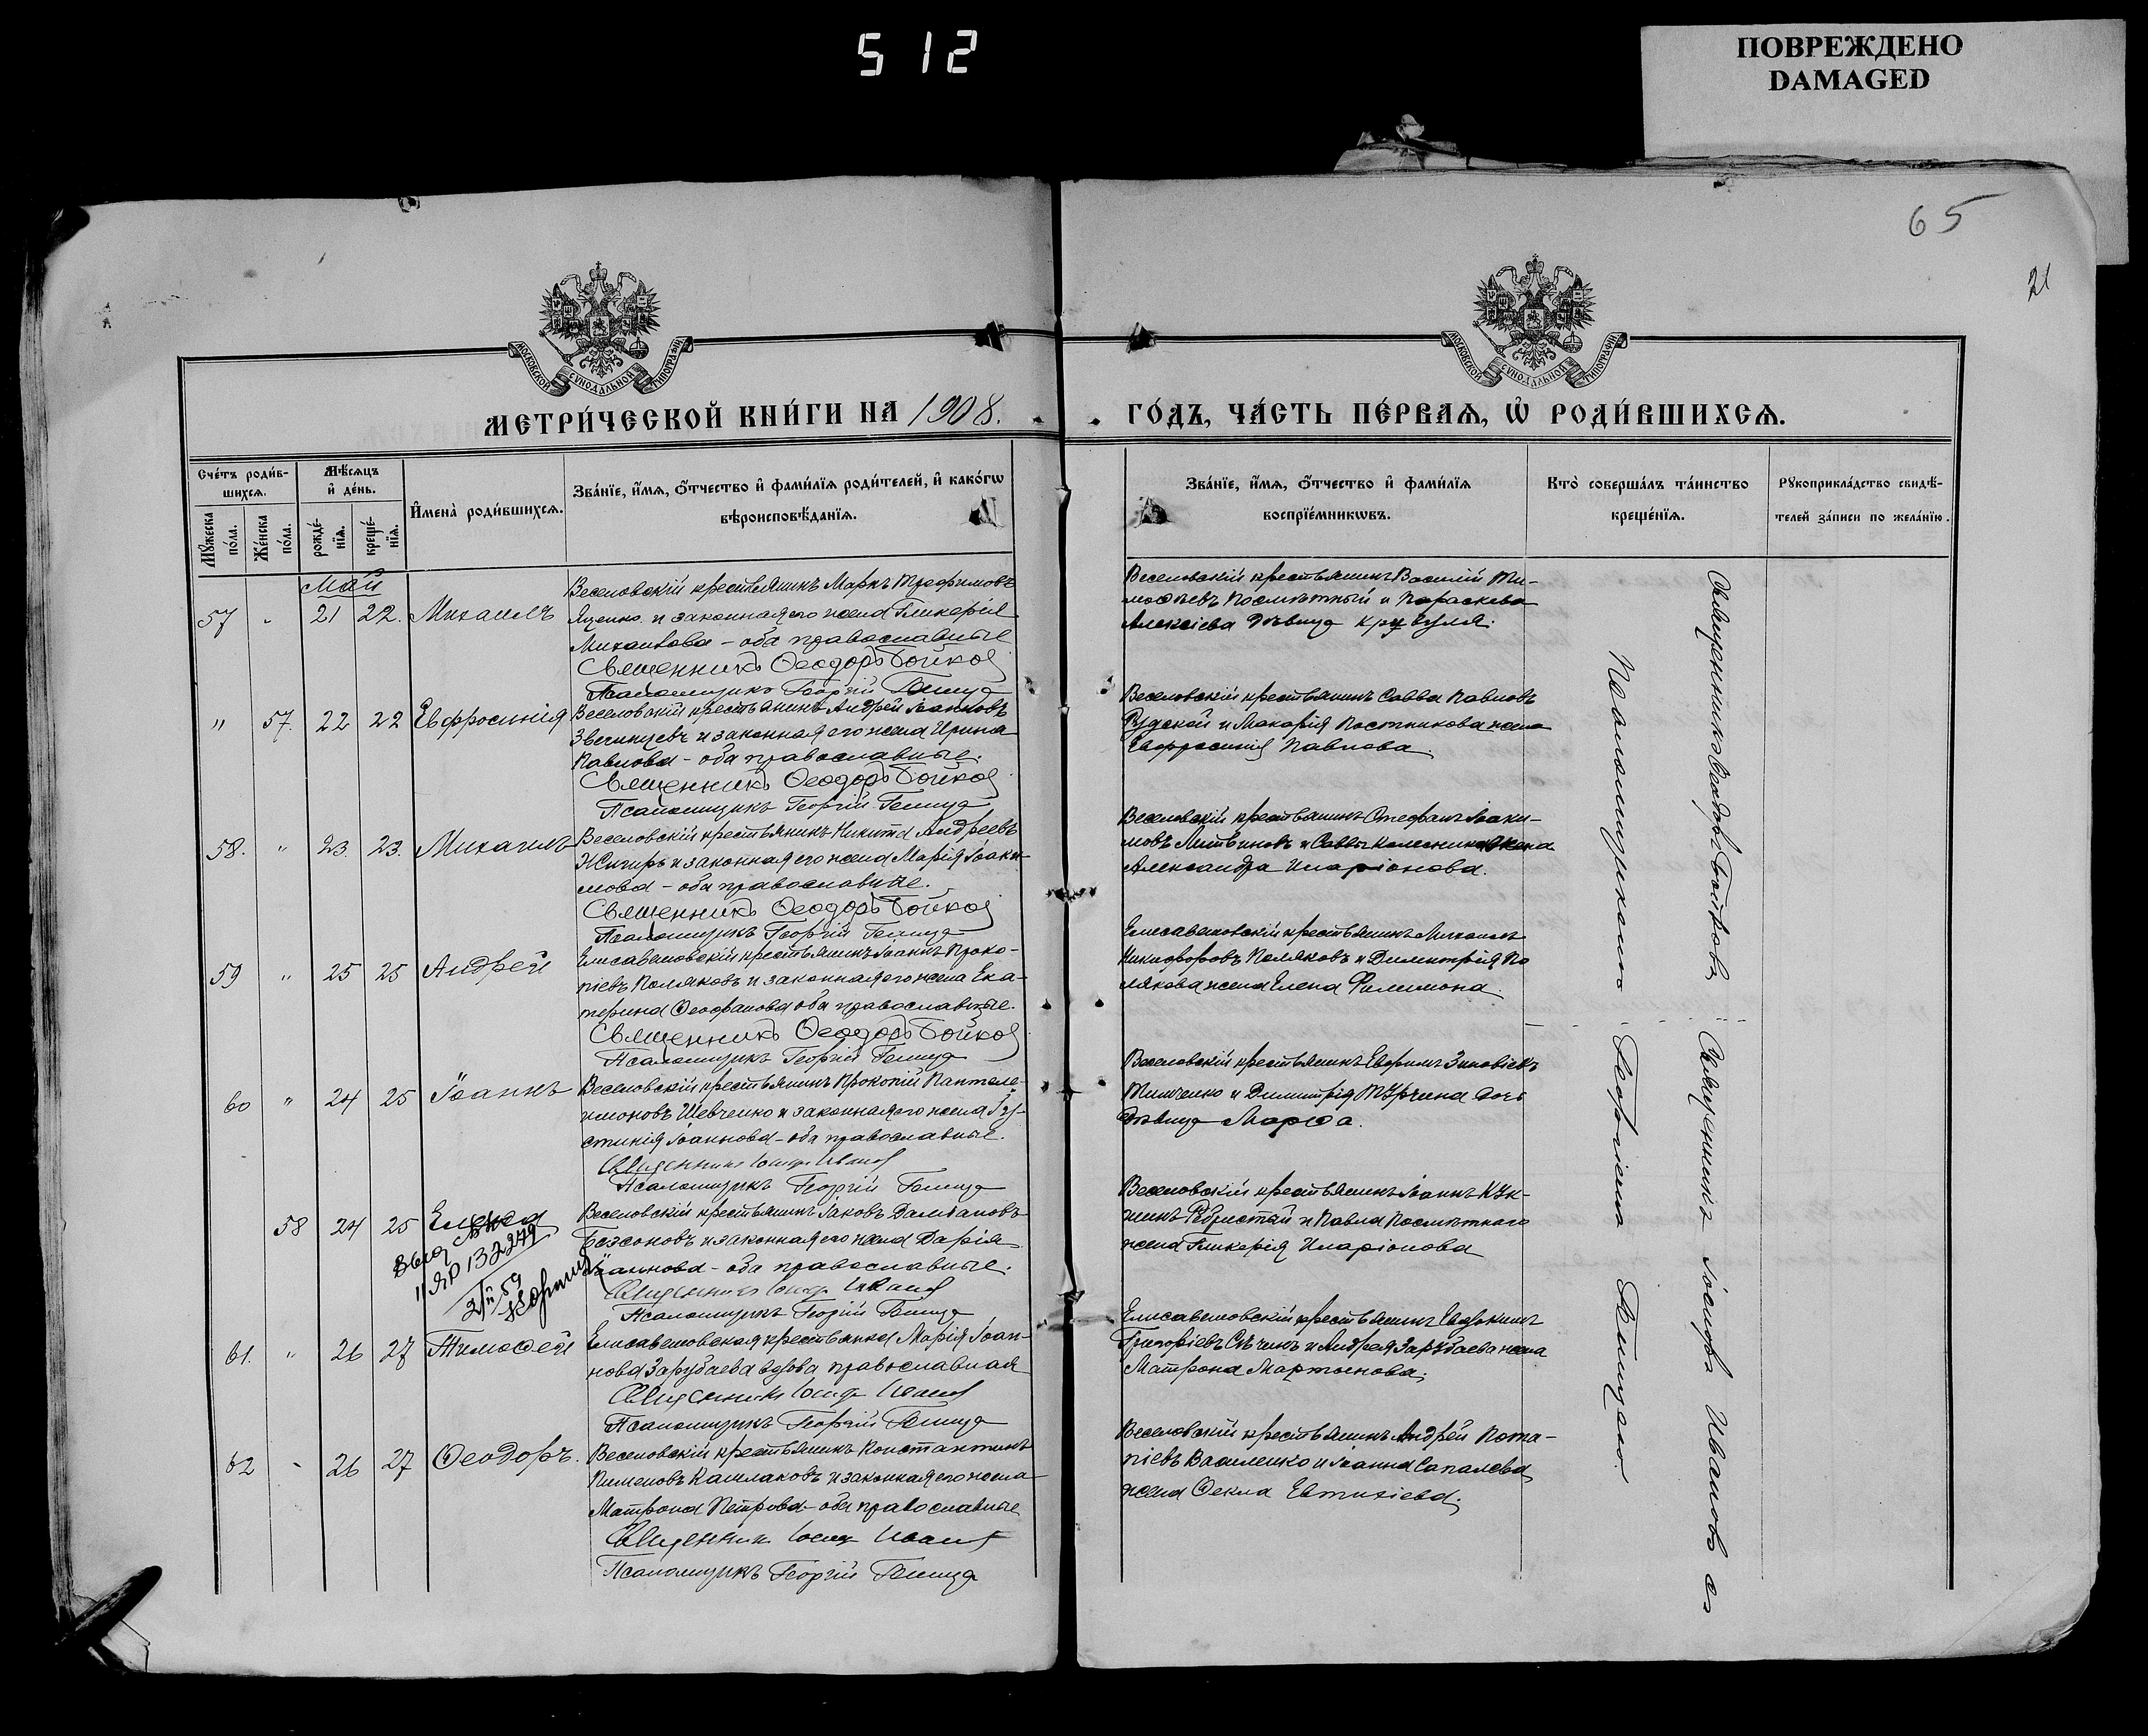 512
ПОВРЕЖДЕНО
DAMAGED
65
21
МОСКОВСКОЙ СУНОДАЛЬНОЙ ТИПОГРАФІИ
МОСКОВСКОЙ СУНОДАЛЬНОЙ ТИПОГРАФІИ
МЕТРИ́ЧЕСКОЙ КНИ́ГИ НА 1908.
ГО́ДЪ, ЧА́СТЬ ПЕ́РВАѦ, Ѽ РОДИ́ВШИХСѦ.
Сче́тъ роди́в-
шихсѧ.
Мꙋ́жеска по́ла.
Же́нска по́ла.
Мѣ́сѧцъ
и҆ де́нь.
рожде́-
нїѧ.
креще́-
нїѧ.
И҆мена̀ роди́вшихсѧ.
Зва́нїе, и҆́мѧ, ѻ҆́тчество и҆ фами́лїѧ роди́телей, и҆ како́гѡ
вѣроисповѣ́данїѧ.
Зва́нїе, и҆́мѧ, ѻ҆́тчество и҆ фами́лїѧ
воспрїе́мникѡвъ.
Кто̀ соверша́лъ та́инство
креще́нїѧ.
Рꙋкоприкла́дство свидѣ́-
телей за́писи по жела́нїю.
Май
57 " 21 22. Михаилъ
Веселовскій крестьянинъ Маркъ Трофимовъ
Яценко и законная его жена Гликерія
Михаилова - оба православные
Священникъ Ѳеодоръ Бойко
Псаломщикъ Георгій
Веселовскій крестьянинъ Василій Ти-
моѳѣевъ Посмѣтный и Параскева
Алексіева дѣвица
" 57. 22 22 Евфросинія
Веселовскій крестьянинъ Андрей Іоанновъ
Звегинцевъ и законная его жена Ирина
Павлова - оба православные.
Священникъ Ѳеодоръ Бойко
Псаломщикъ Георгій
Веселовскій крестьянинъ Савва Павловъ
Рудской и Макарія Постникова жена
Евфросинія Павлова.
58. " 23. 23. Михаилъ
Веселовскій крестьянинъ Никита Андреевъ
и законная его жена Марія Іоаки-
мова - оба православные.
Священникъ Ѳеодоръ Бойко
Псаломщикъ Георгій
Веселовскій крестьянинъ Стефанъ Іоаки-
мовъ Литвиновъ и Саввы Колесника жена
Александра Иларіонова.
59 " 25 25 Андрей
Елисаветовскій крестьянинъ Іоаннъ Проко-
піевъ Поляковъ и законная его жена Ека-
терина Ѳеофанова оба православные.
Священникъ Ѳеодоръ Бойко
Псаломщикъ Георгій
Елисаветовскій крестьянинъ Михаилъ
Никифоровъ Поляковъ и Димитрія По
лякова жена Елена Филимона.
60 " 24 25 Іоаннъ
Веселовскій крестьянинъ Прокопій Пантеле-
имоновъ Шевченко и законная его жена Іу-
стинія Іоаннова - оба православные.
Священникъ Іосифъ Ивановъ
Псаломщикъ Георгій
Веселовскій крестьянинъ Евфимъ Зиновіевъ
Тимченко и Димитрія дочь
дѣвица Марѳа.
58 24 25 Елена
ЯР 132249
Веселовскій крестьянинъ Іаковъ
Безсоновъ и законная его жена Дарія
Іоаннова - оба православные.
Священникъ Іосифъ Ивановъ
Псаломщикъ Георгій
Веселовскій крестьянинъ Іоаннъ Кузь-
минъ и Павла Посмѣтнаго
жена Гликерія Иларіонова
61. " 26 27 Тимоѳей
Елисаветовская крестьянка Марія Іоан-
нова Зарубаева вдова православная
Священникъ Іосифъ Ивановъ
Псаломщикъ Георгій
Елисаветовскій крестьянинъ Евдокимъ
Григоріевъ и Андрея Зарубаева жена
Матрона Мартынова.
62 " 26 27 Ѳеодоръ.
Веселовскій крестьянинъ Константинъ
Пименовъ Кашлаковъ и законная его жена
Матрона Петрова - оба православные
Священникъ Іосифъ Ивановъ
Псаломщикъ Георгій
Веселовскій крестьянинъ Андрей Пота-
піевъ Василенко и Іоанна Сапалева
жена Ѳекла Евтихіева.
Священникъ Ѳеодоръ
Священникъ Іосифъ Ивановъ съ
Псаломщикомъ Георгіемъ